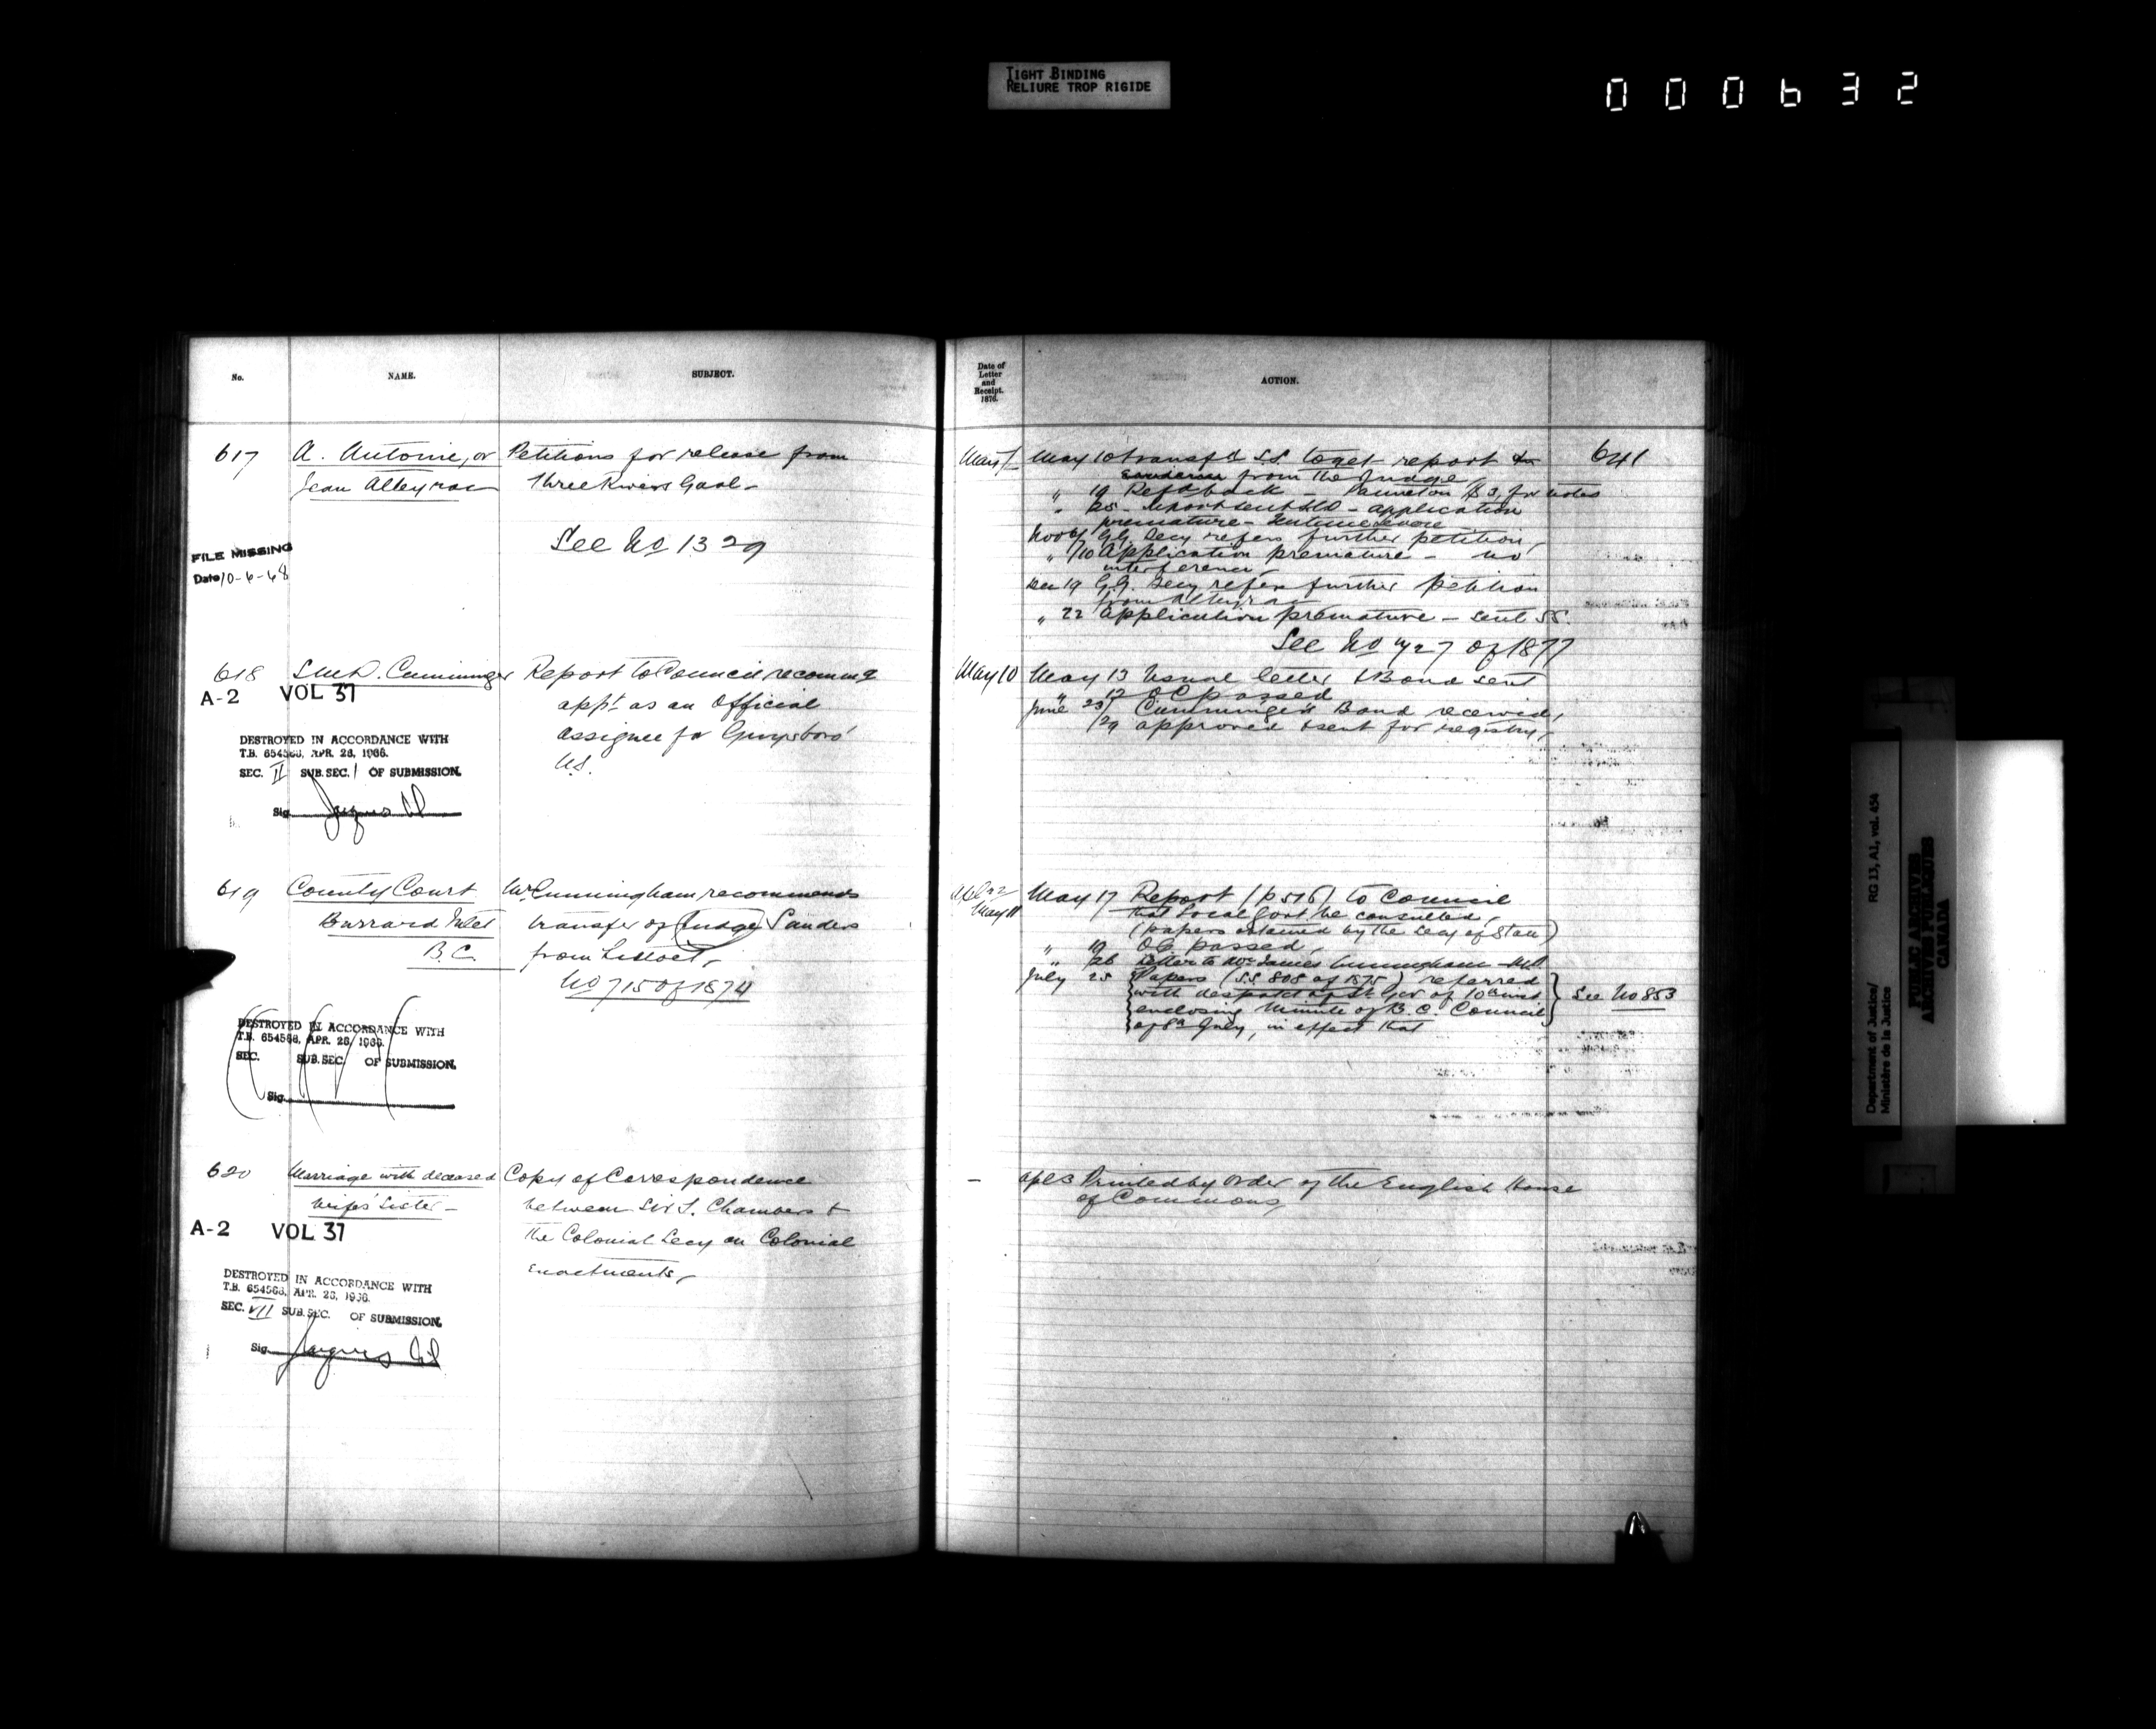 TIGHT BINDING
RELIURE TROP RIGIDE
000632
No.
NAME.
SUBJECT.
617
A. Antoine, or
Petitions for release from
Jean Alleyrac
Three Rivers Gaol-
See No 1329
FILE MISSING
Date 10-6-48
618
Cumminger
Report to Council recommg
A-2 VOL 37
appt as an Official
assignee for Guysboro'
N.S.
DESTROYED IN ACCORDANCE WITH
T.B. 654568, APR. 28, 1966.
SEC. II SUB.SEC. 1 OF SUBMISSION.
Sig.
619
County Court
Mr Cunningham recommends
Burrard Inlet
transfer of (Judge) Sanders
B.C.
from Lillooet,
No 715 of 1874
DESTROYED IN ACCORDANCE WITH
T.B. 654568, APR. 28, 1966.
SEC. SUB.SEC. OF SUBMISSION.
Sig.
620
Marriage with deceased
Copy of Correspondence
Wife's Sister-
between Sir T. Chambers &
A-2 VOL 37
the Colonial Secy on Colonial
enactments,
DESTROYED IN ACCORDANCE WITH
T.B. 654568, APR. 28, 1966.
SEC. VII SUB.SEC. OF SUBMISSION.
Sig.
Date of
Letter
and
Receipt.
1876.
ACTION.
641
May 10 transfd S.S. to get report &
from the Judge,
" 19 Refd back - $3, for notes
" 25- Report sent - application
premature- Sentence
Nov 6 G.G. Secy refers further petition,
" /10 Application premature - no
interference,
Dec 19 G.G. Secy refers further petition
from Alleyrac
" 22 Application premature - sent S.S.
See No 427 of 1877
May 10
May 13 Usual letter & Bond sent
" 12 OC passed
June 23/ Cumminger's Bond received,
/29 approved & sent for registry,
Apl 22
May 11
May 17 Report (p 516) to Council
that Local Govt be consulted,
(papers retained by the Secy of State)
" 19 O.C. passed,
" 26 Letter to Mr James Cunningham
July 25 Papers (S.S. 808 of 1875) referred
with despatch of Lt Gov of 10th inst
enclosing Minute of B.C. Council
of 8th July, in effect that
See No 853
-
Apl 3 Printed by Order of the English House
of Commons,
Department of Justice/
Ministère de la Justice
RG 13, A1, vol. 454
PUBLIC ARCHIVES
ARCHIVES PUBLIQUES
CANADA